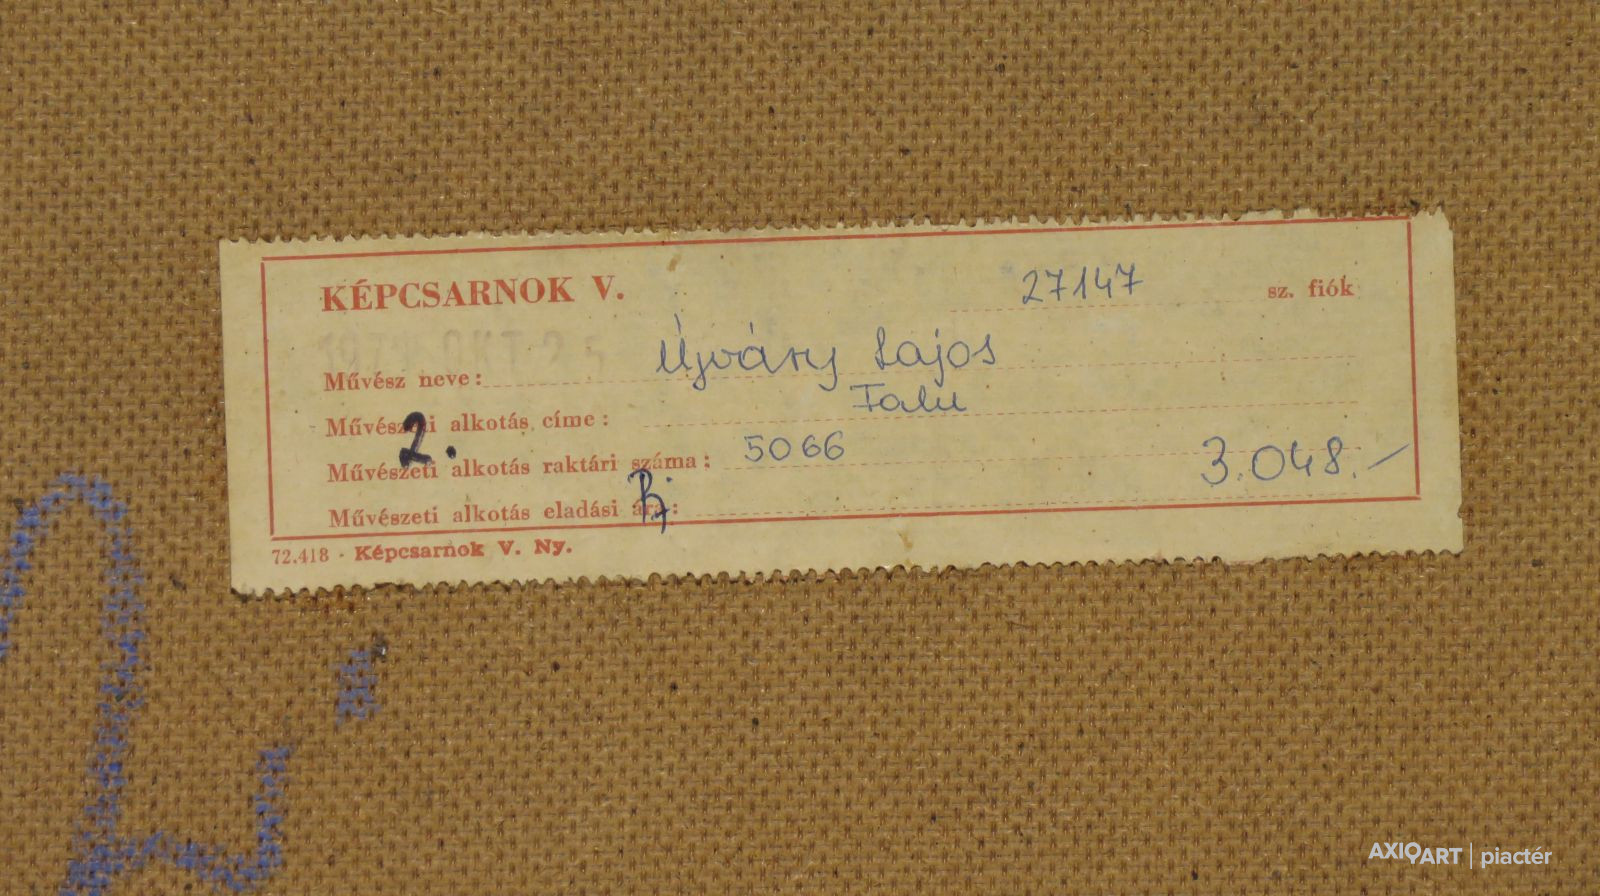 KÉPCSARNOK V. 27147 sz. fiók
OKT 25
Művész neve: Újváry Lajos
Művészeti alkotás címe: Falu
2.
Művészeti alkotás raktári száma: 5066
Művészeti alkotás eladási ára: 3.048.-
72.418 - Képcsarnok V. Ny.
2.
AXIOART | piactér